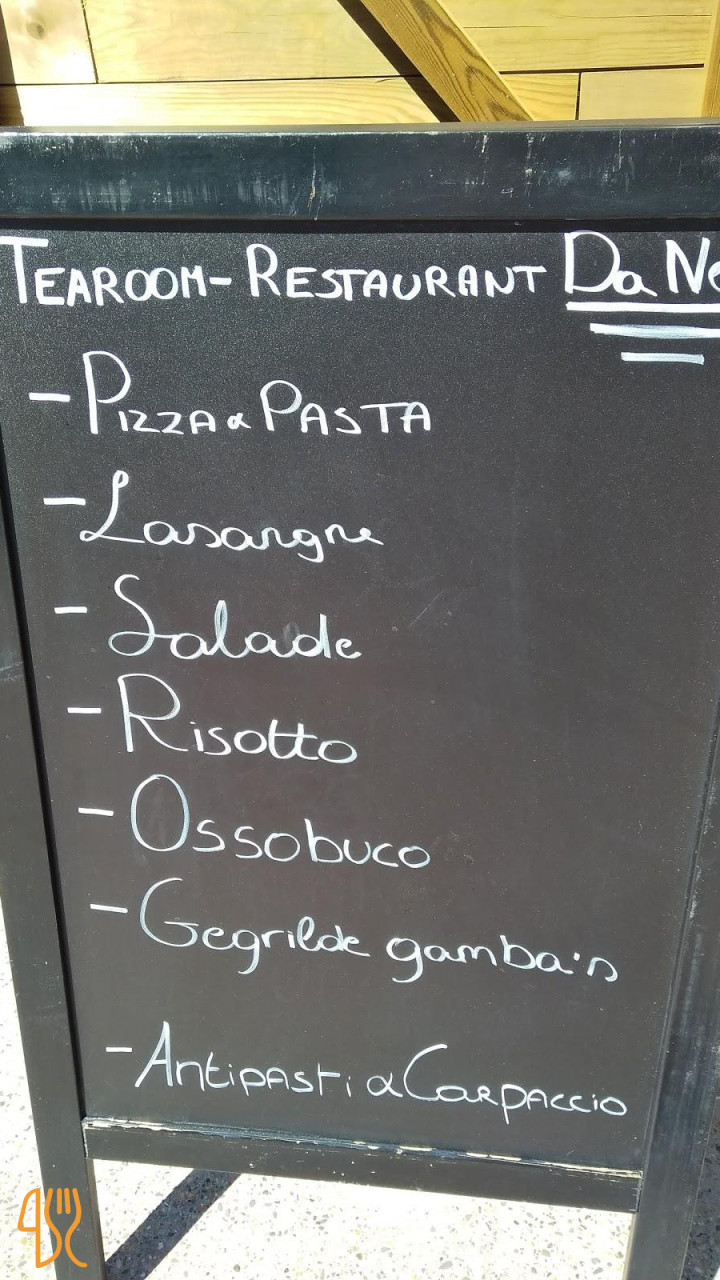 TEAROOM-RESTAURANT Da
- PIZZA & PASTA
- Lasangne
- Salade
- Risotto
- Ossobuco
- Gegrilde gamba's
- ANTIPASTI & CARPACCIO